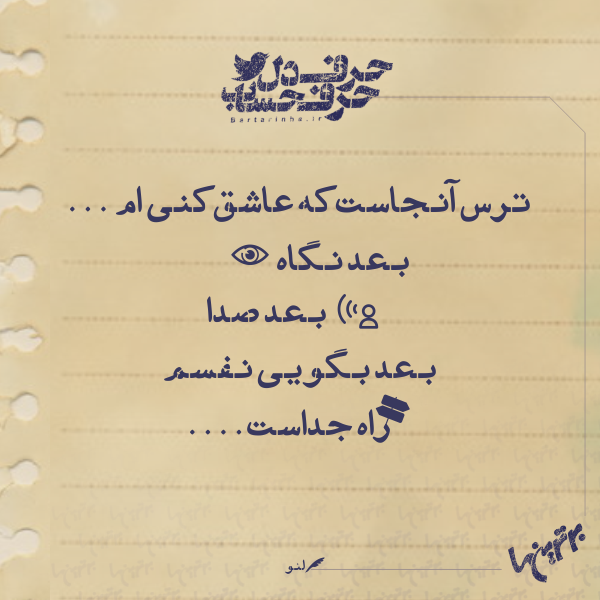 حرف دل
حرف حساب
Bartarinha.ir
ترس آنجاست که عاشق کنی ام ...
بعد نگاه
بعد صدا
بعد بگویی نفسم
راه جداست....
لنو
برترین ها